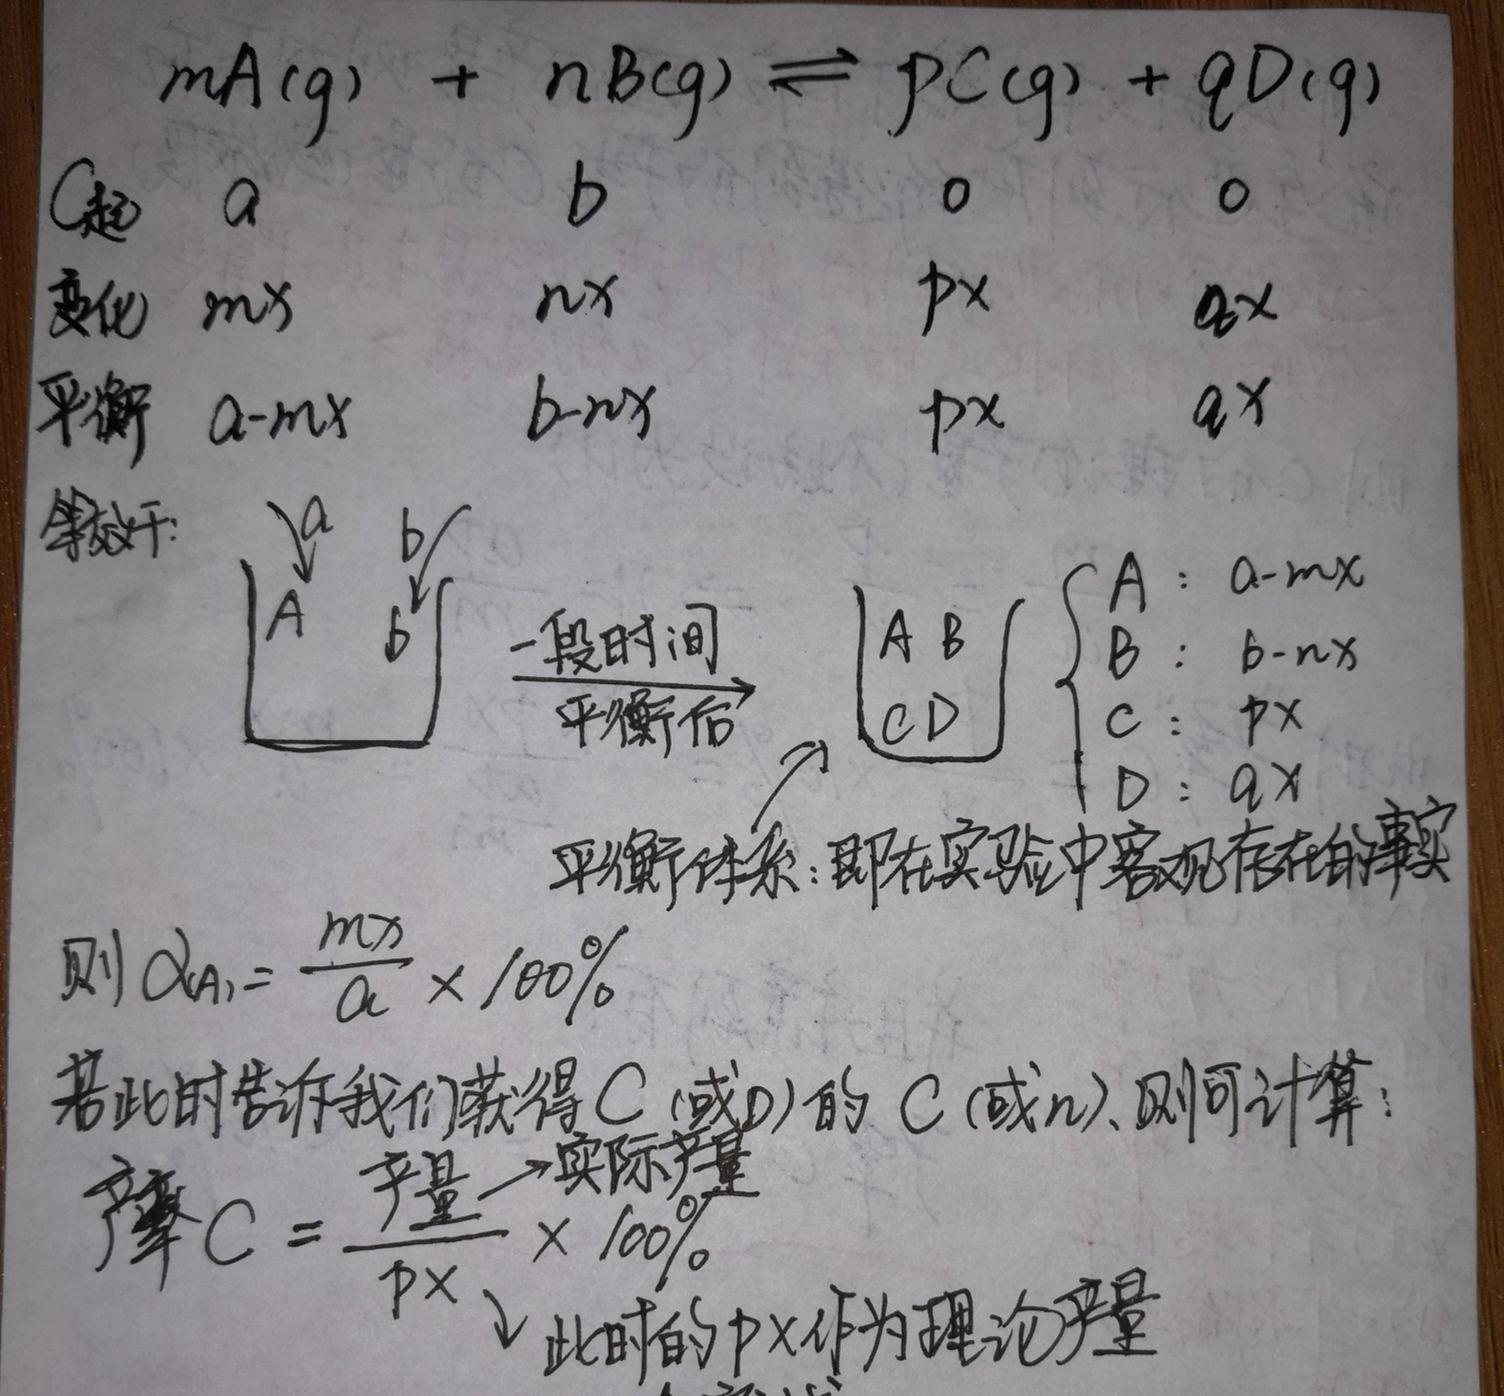 mA(g) + nB(g) ⇌ pC(g) + qD(g)
C起 a b 0 0
变化 mx nx px qx
平衡 a-mx b-nx px qx
等效于:
a b
A b
一段时间
平衡后
A B
C D
A: a-mx
B: b-nx
C: px
D: qx
平衡体系:即在实验中客观存在的事实
则 α(A) = mx/a × 100%
若此时告诉我们获得C(或D)的 C(或n)、则可计算:
产率C = 产量/px × 100%
→实际产量
此时的px作为理论产量